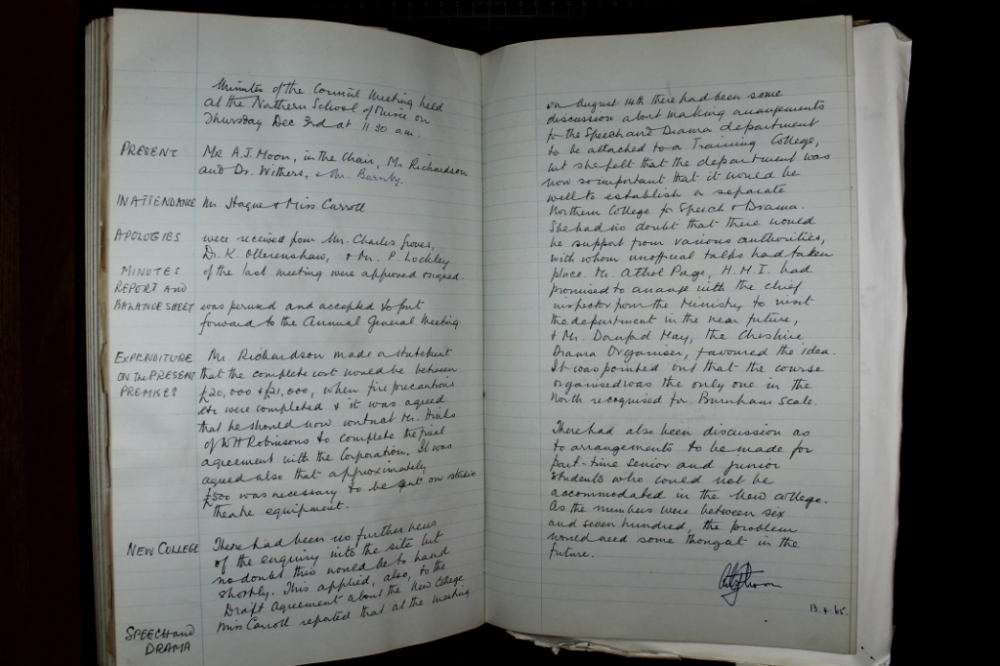 Minutes of the Council Meeting held
at the Northern School of Music on
Thursday Dec 3rd at 11.30 a.m.
PRESENT Mr A.J. Moon, in the Chair, Mr Richardson
and Dr. Withers, & Mr. Barnby.
IN ATTENDANCE Mr. Hague & Miss Carroll
APOLOGIES were received from Mr. Charles Groves,
Dr. K. Ollerenshaw, & Mr. P. Lockley
MINUTES of the last meeting were approved & signed.
REPORT AND
BALANCE SHEET was perused and accepted to put
forward to the Annual General Meeting.
EXPENDITURE Mr Richardson made a statement
ON the PRESENT that the complete cost would be between
PREMISES £20,000 & £21,000, when fire precautions
etc were completed & it was agreed
that he should now contact Mr. Hinks
of W H Robinsons to complete the final
agreement with the Corporation. It was
agreed also that approximately
£500 was necessary to be spent on studio
theatre equipment.
NEW COLLEGE There had been no further news
of the enquiry into the site but
no doubt this would be to hand
shortly. This applied, also, to the
Draft Agreement about the New College
SPEECH and Miss Carroll reported that at the meeting
DRAMA
on August 14th there had been some
discussion about making arrangements
for the Speech and Drama department
to be attached to a Training College,
but she felt that the department was
now so important that it would be
well to establish a separate
Northern College for Speech & Drama.
She had no doubt that there would
be support from various authorities,
with whom unofficial talks had taken
place. Mr. Athol Page, H.M.I. had
promised to arrange with the chief
inspector from the Ministry to visit
the department in the near future,
& Mr. Danford May, the Cheshire
Drama Organiser, favoured the idea.
It was pointed out that the course
organised was the only one in the
North recognised for Burnham Scale.
There had also been discussion as
to arrangements to be made for
part-time senior and junior
students who could not be
accommodated in the New College.
As the numbers were between six
and seven hundred, the problem
would need some thought in the
future.
13.4.65.